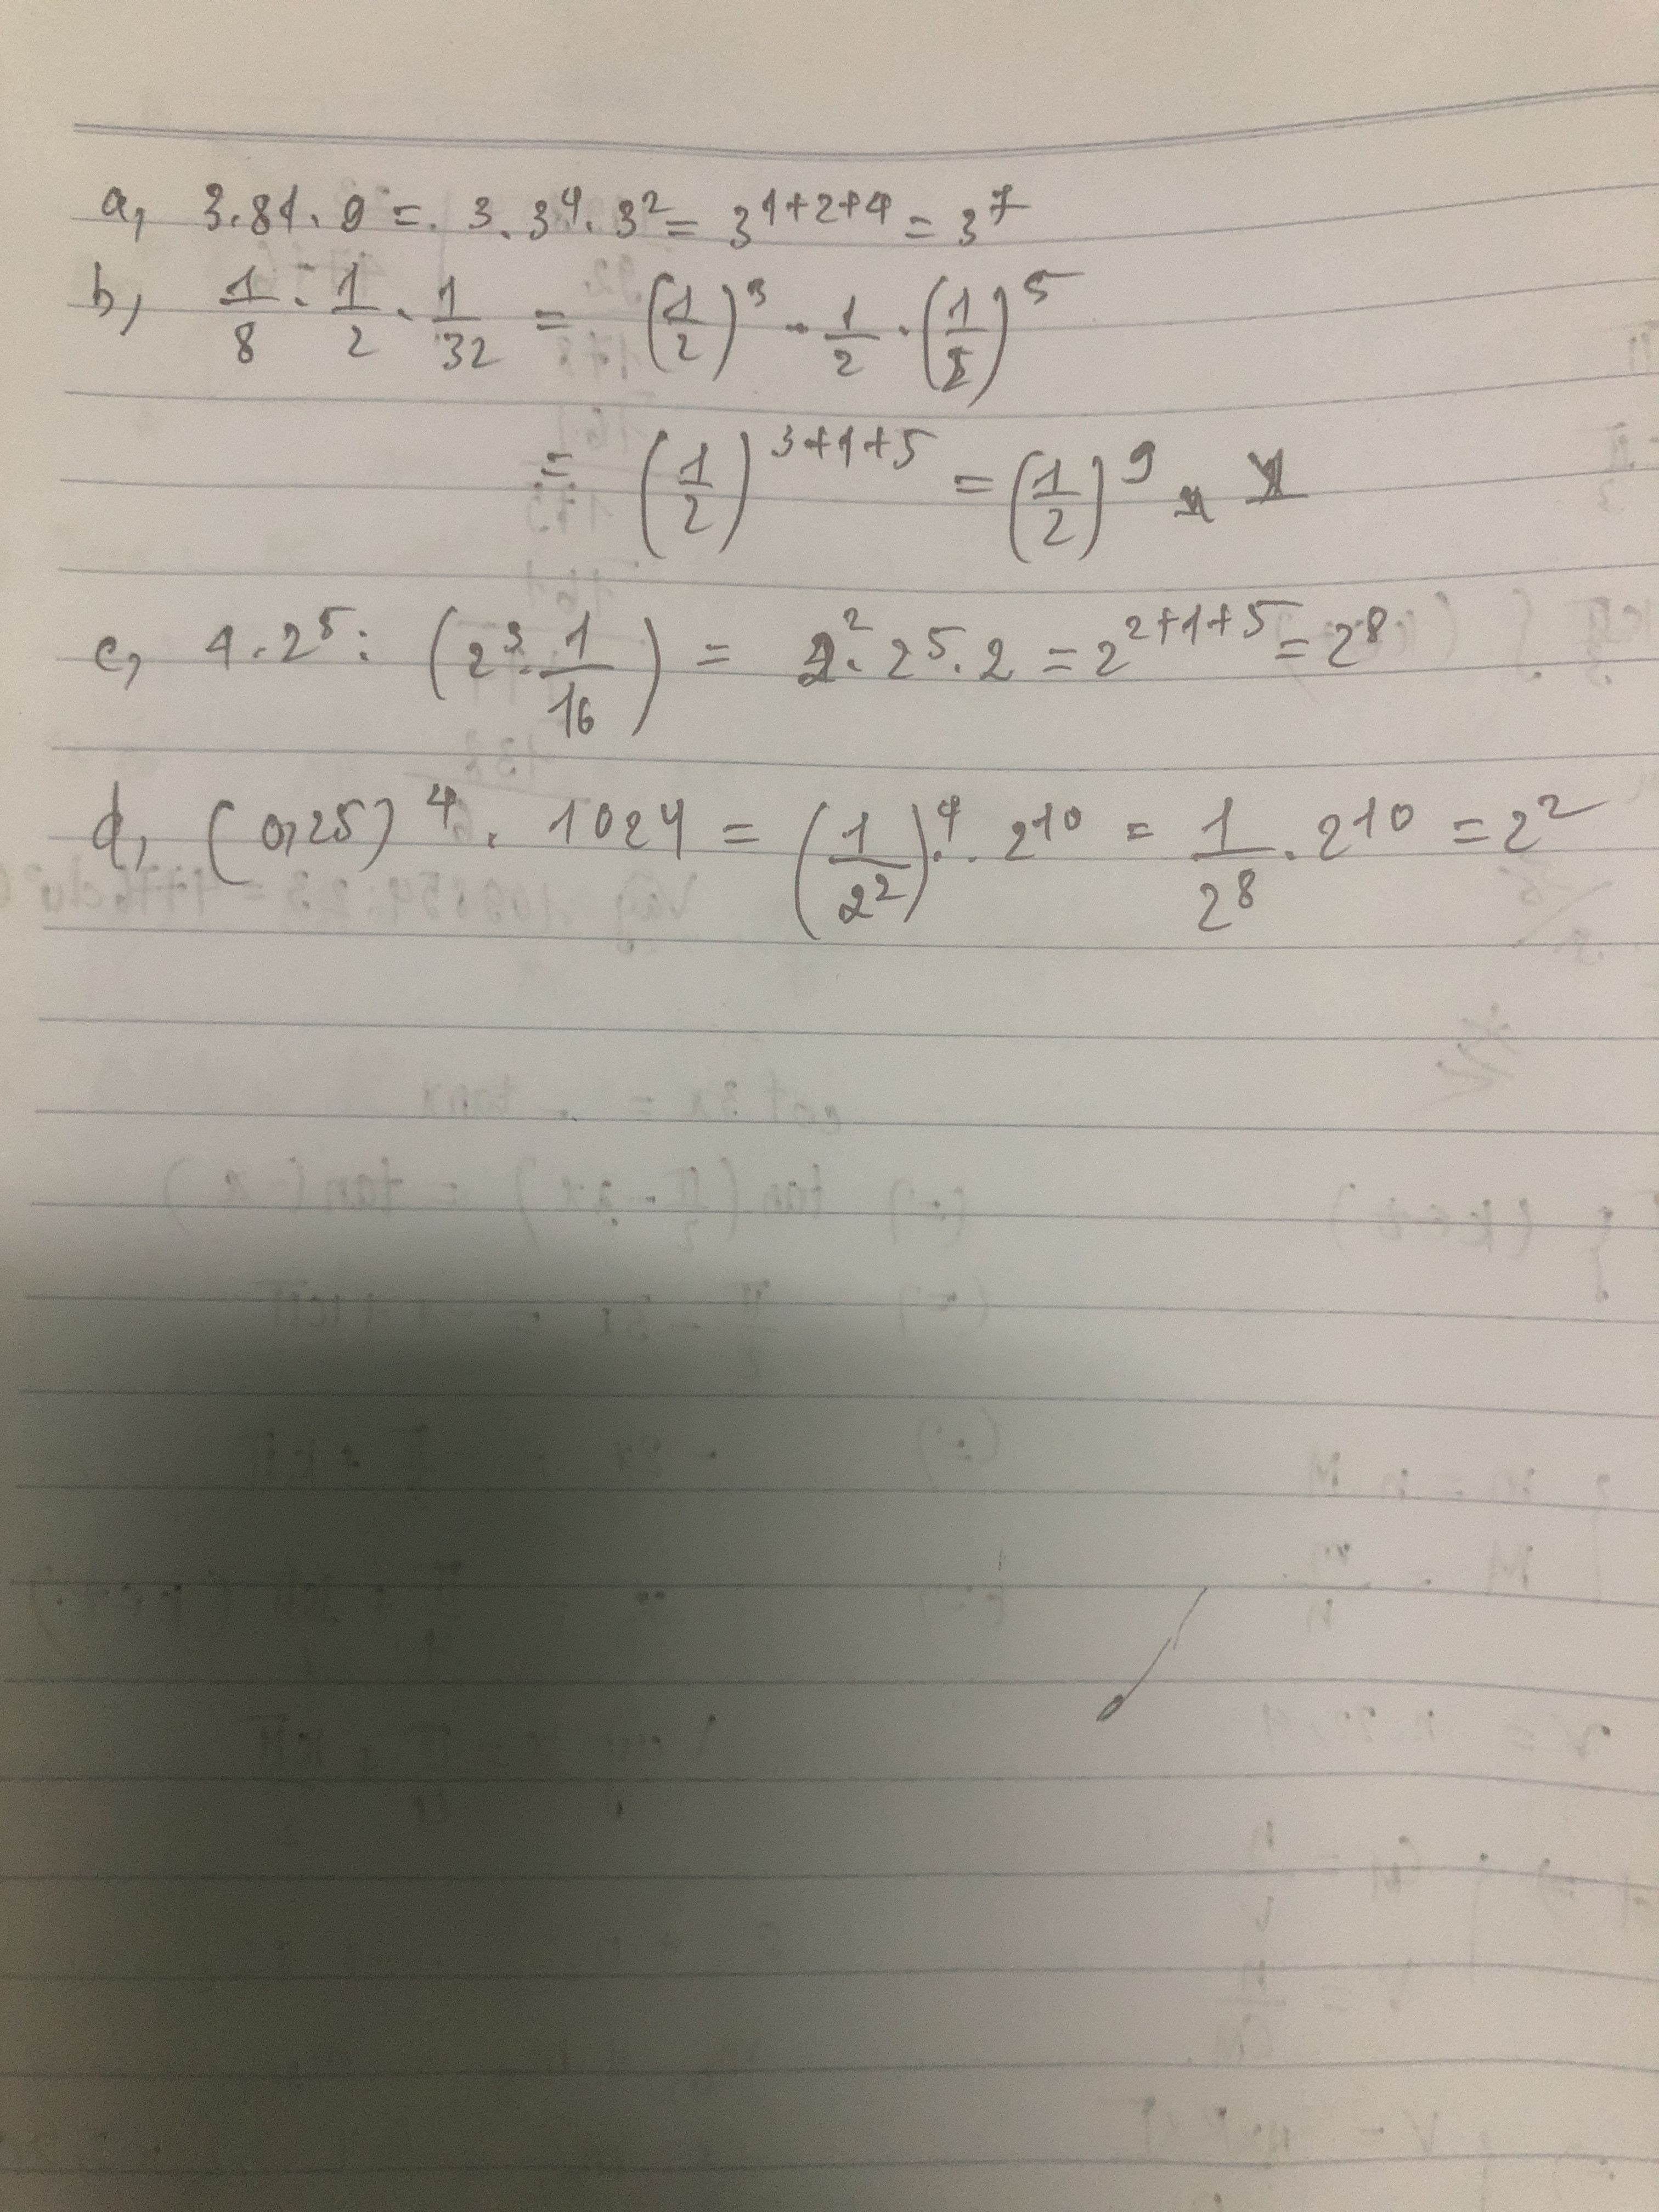 a, 3.81.9 = 3.3⁴.3² = 3¹⁺²⁺⁴ = 3⁷
b, 1/8 . 1/2 . 1/32 = (1/2)³ . 1/2 . (1/2)⁵
= (1/2)³⁺¹⁺⁵ = (1/2)⁹
c, 4.2⁵ : (2³ . 1/16) = 2².2⁵.2 = 2²⁺¹⁺⁵ = 2⁸
d, (0,25)⁴ . 1024 = (1/2²)⁴ . 2¹⁰ = 1/2⁸ . 2¹⁰ = 2²